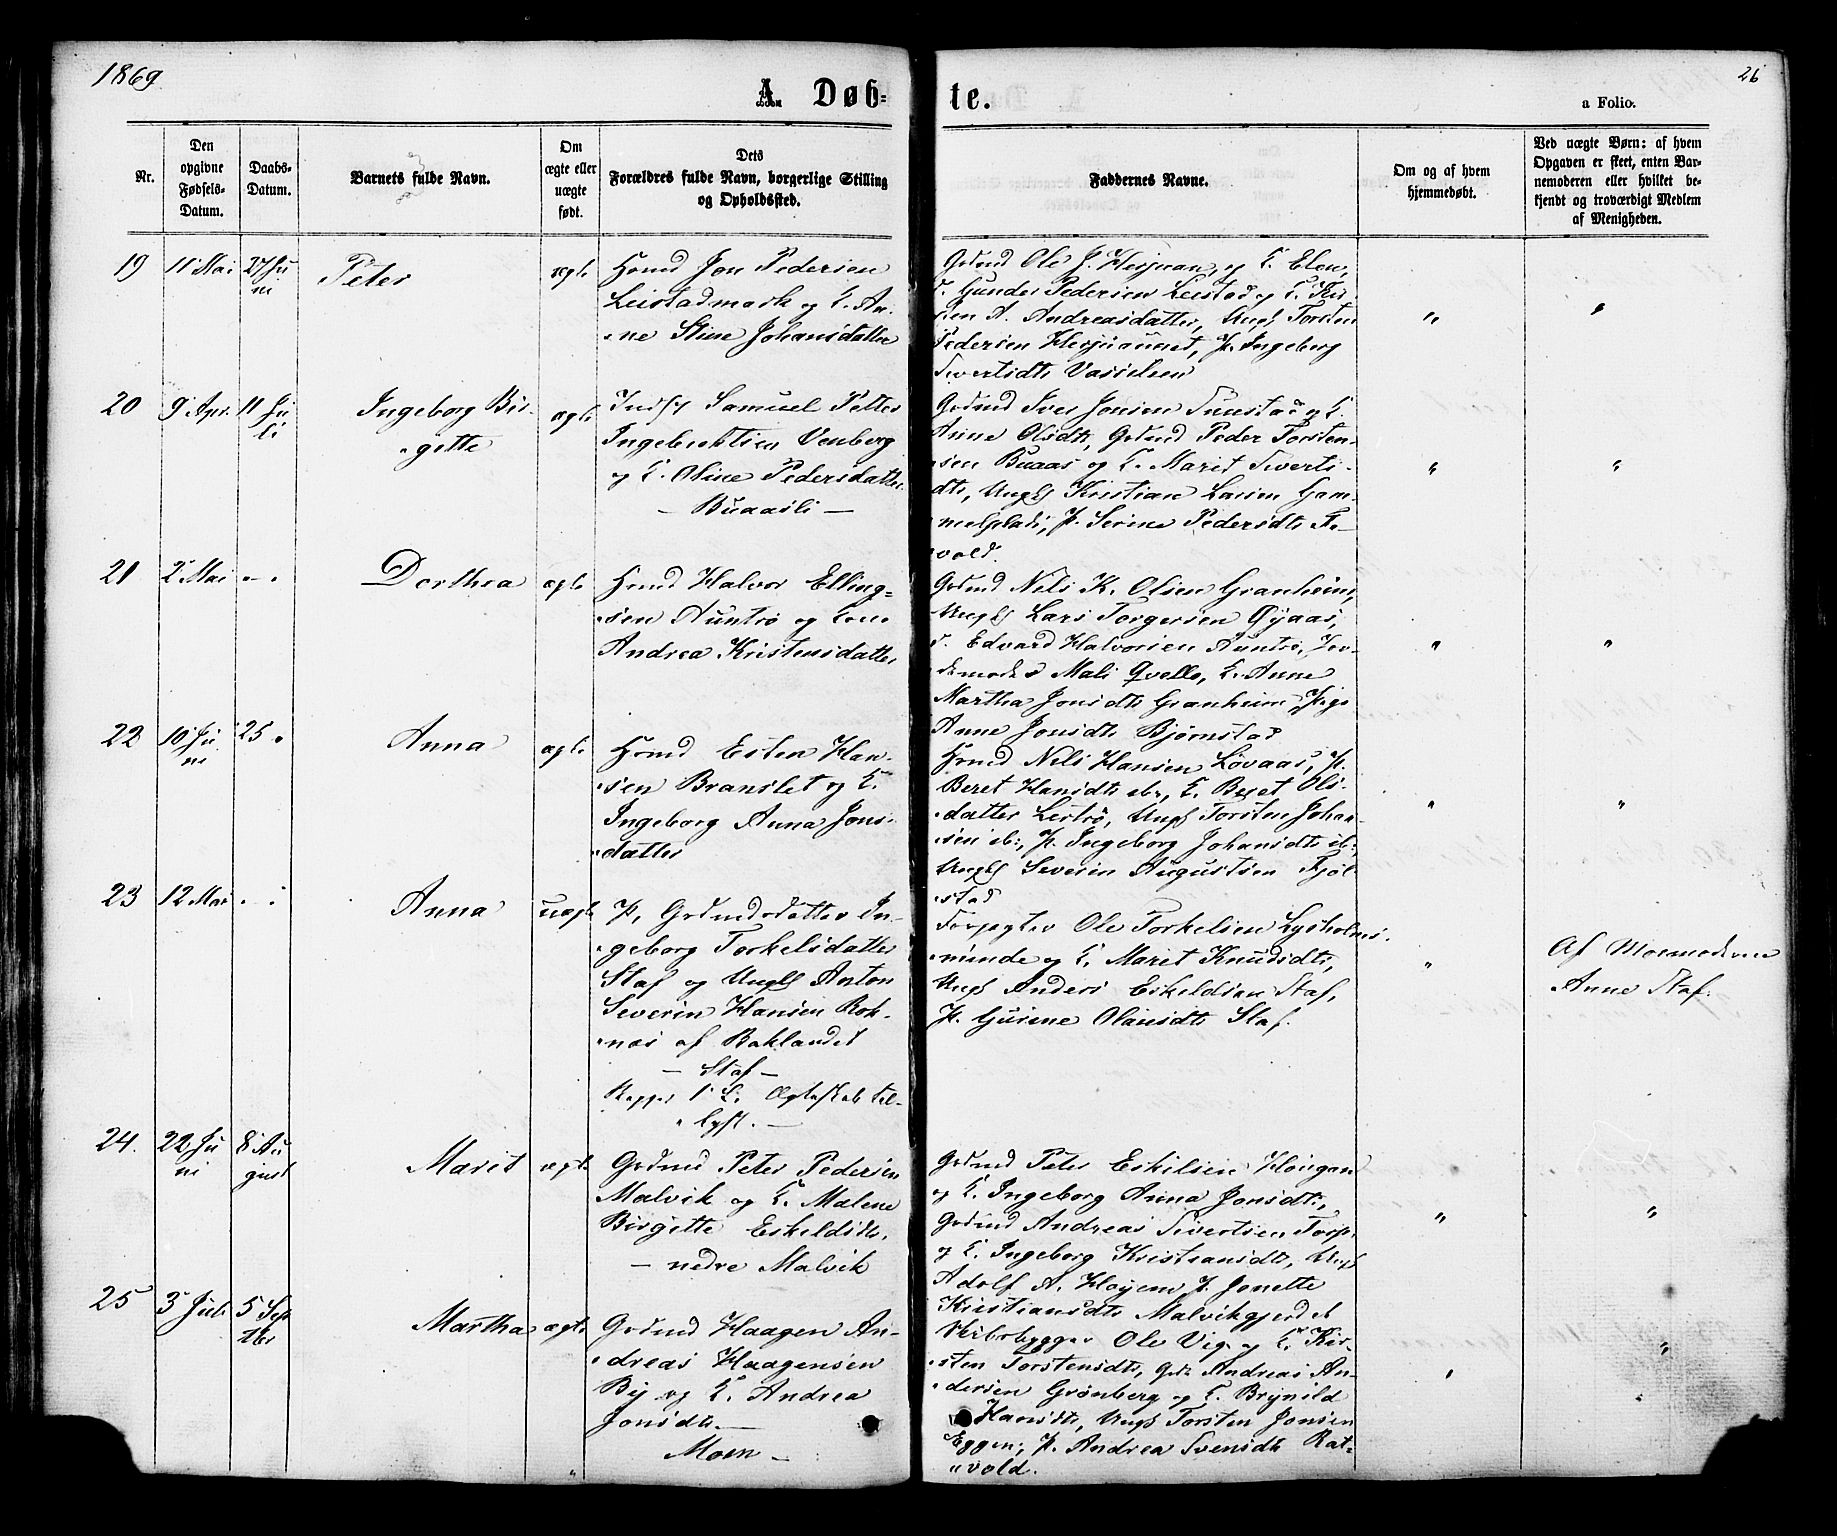 1869
26
A. Døb=
te.
a Folio.
Nr.
Den opgivne Fødsels-Datum.
Daabs-Datum.
Barnets fulde Navn.
Om ægte eller uægte født.
Dets Forældres fulde Navn, borgerlige Stilling og Opholdssted.
Faddernes Navne.
Om og af hvem hjemmedøbt.
Ved uægte Børn: af hvem Opgaven er skeet, enten Barnemoderen eller hvilket bekjendt og troværdigt Medlem af Menigheden.
19 11 Mai 27 Ju
ni
Peter
ægte
Hsmd Jon Pedersen
Leistadmark og K. An-
ne Stine Johansdatter
Gdmd Ole J. Hesjuan, og K. Elen,
Gunder Pedersen Leistad og K. Kir-
sten A. Andreasdatter, Ungk Torsten
Pedersen Hesjuaunet, P. Ingeborg
Sivertsdtr Vasselsen
" "
20 9 Apr. 11 Ju
li
Ingeborg Bir-
gitte
ægte
Inds Samuel Petter
Ingebrektsen Venberg
og K. Oline Pedersdatter
— Buaasli —
Gdmd Iver Jonsen Tunstad og K.
Anne Olsdtr, Gdmd Peder Torsten-
sen Buaas og K. Marit Siverts-
dtr, Ungk Kristian Larsen Gam-
melplads, P. Serine Pedersdtr
vold.
" "
21 2 Mai " "
Dorthea
ægte
Hsmd Halvor Elling=
sen Auntrø og Kone
Andrea Kristensdatter
Gdmd Nils K. Olsen Granheim,
Ungk Lars Torgersen Øyaas,
Edvard Halvorsen Auntrø, Jor-
demoder Mali Qvello, K. Anne
Martha Jonsdtr Granheim, Pige
Anne Jonsdtr Bjørnstad
" "
22 10 Ju
ni
25 "
Anna
ægte
Hsmd Esten Han-
sen Branslet og K.
Ingeborg Anna Jons-
datter
Hsmd Nils Hansen Løvaas, P.
Beret Hansdtr sb., K. Beret Ols-
datter Lestrø, Ungk Torsten Johan-
sen sb., P. Ingeborg Johansdtr sb.
Ungk Severin Augustsen Fjøl-
stad
" "
23 12 Mai " "
Anna
uægte
P. Gdmdsdatter In-
geborg Torkelsdatter
Staf og Ungk Anton
Severin Hansen Rok-
nes af Baklandet
— Staf —
1 L. Ægteskab til-
lyst. —
Forpagter Ole Torkelsen Lysholms-
minde og K. Marit Knudsdtr,
Ungk Anders Eskeldsen Staf,
P. Gurine Olausdtr Staf.
"
Af Mormoderen
Anne Staf.
24. 22 Ju
ni
8 Au
gust
Marit
ægte
Gdmd Peter Pedersen
Malvik og K. Malene
Birgitte Eskeldsdtr.
— nedre Malvik
Gdmd Peter Eskilsen Haugan
og K. Ingeborg Anna Jonsdtr,
Gdmd Andreas Sivertsen Torp,
og K. Ingeborg Kristiansdtr, Ungk
Adolf A. Høyem, P. Jonette
Kristiansdtr Malvikgjerdet
" "
25 3 Juli 5 Sep
tbr
Martha
ægte
Gdmd Haagen An-
dreas Haagensen
By og K. Andrea
Jonsdtr. —
Moen —
Veibobygger Ole Vig og K. Kir-
sten Torstensdtr, Gdm Andreas An-
dersen Grønberg og K. Brynild
Hansdtr, Ungk Torsten Jonsen
Eggen, P. Andrea Svensdtr Rat-
vold.
" "